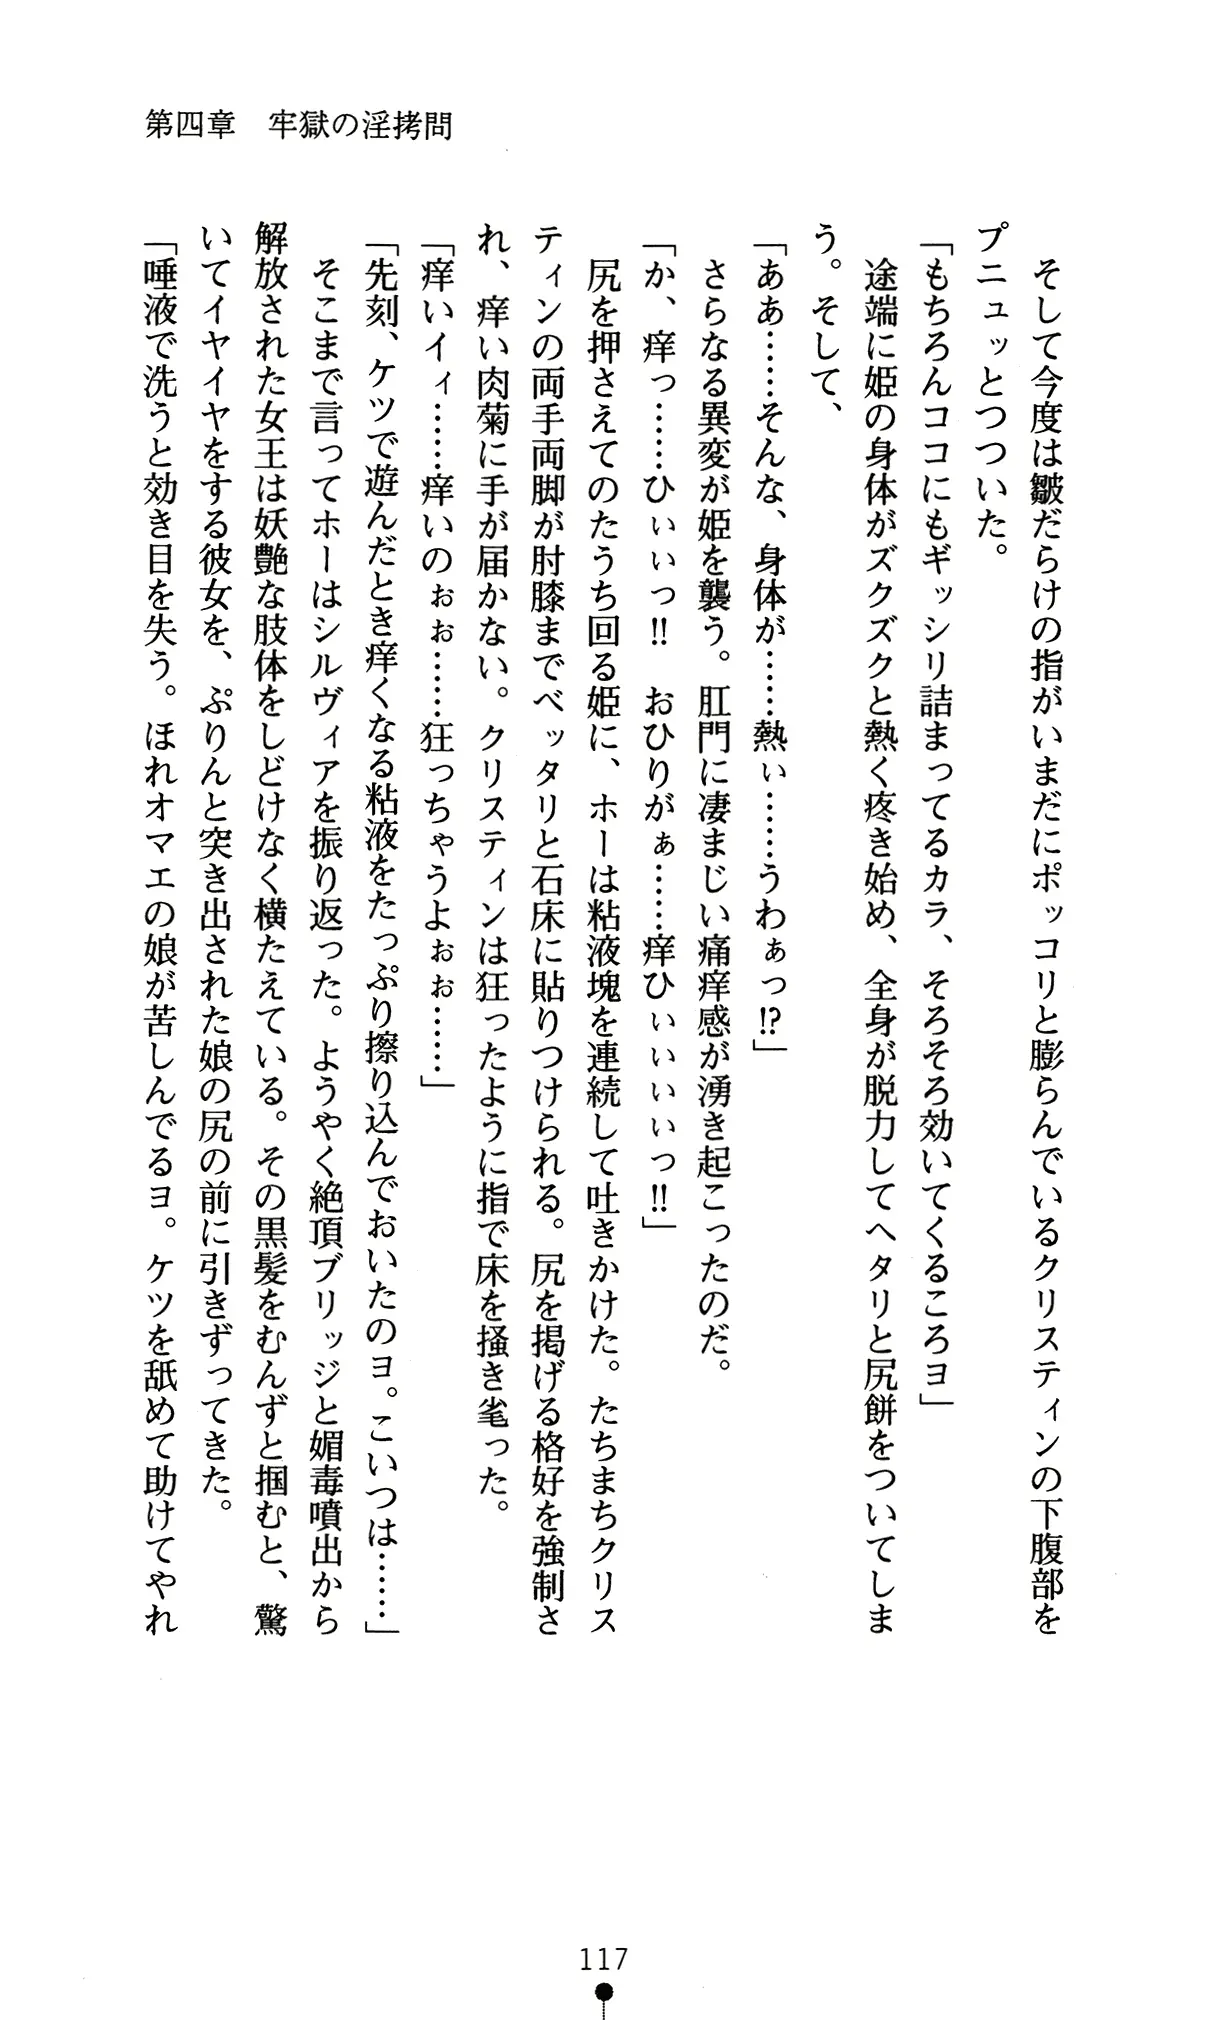 第四章　牢獄の淫拷問
そして今度は皺だらけの指がいまだにポッコリと膨らんでいるクリスティンの下腹部を
プニュッとつついた。
「もちろんココにもギッシリ詰まってるカラ、そろそろ効いてくるころヨ」
途端に姫の身体がズクズクと熱く疼き始め、全身が脱力してヘタリと尻餅をついてしま
う。そして、
「ああ……そんな、身体が……熱ぃ……うわぁっ!?」
さらなる異変が姫を襲う。肛門に凄まじい痛痒感が湧き起こったのだ。
「か、痒っ……ひぃぃっ!!　おひりがぁ……痒ひぃぃぃぃっ!!」
尻を押さえてのたうち回る姫に、ホーは粘液塊を連続して吐きかけた。たちまちクリス
ティンの両手両脚が肘膝までベッタリと石床に貼りつけられる。尻を掲げる格好を強制さ
れ、痒い肉菊に手が届かない。クリスティンは狂ったように指で床を掻き毟った。
「痒いイィ……痒いのぉぉ……狂っちゃうよぉぉ……」
「先刻、ケツで遊んだとき痒くなる粘液をたっぷり擦り込んでおいたのヨ。こいつは……」
そこまで言ってホーはシルヴィアを振り返った。ようやく絶頂ブリッジと媚毒噴出から
解放された女王は妖艶な肢体をしどけなく横たえている。その黒髪をむんずと掴むと、驚
いてイヤイヤをする彼女を、ぷりんと突き出された娘の尻の前に引きずってきた。
「唾液で洗うと効き目を失う。ほれオマエの娘が苦しんでるヨ。ケツを舐めて助けてやれ
117